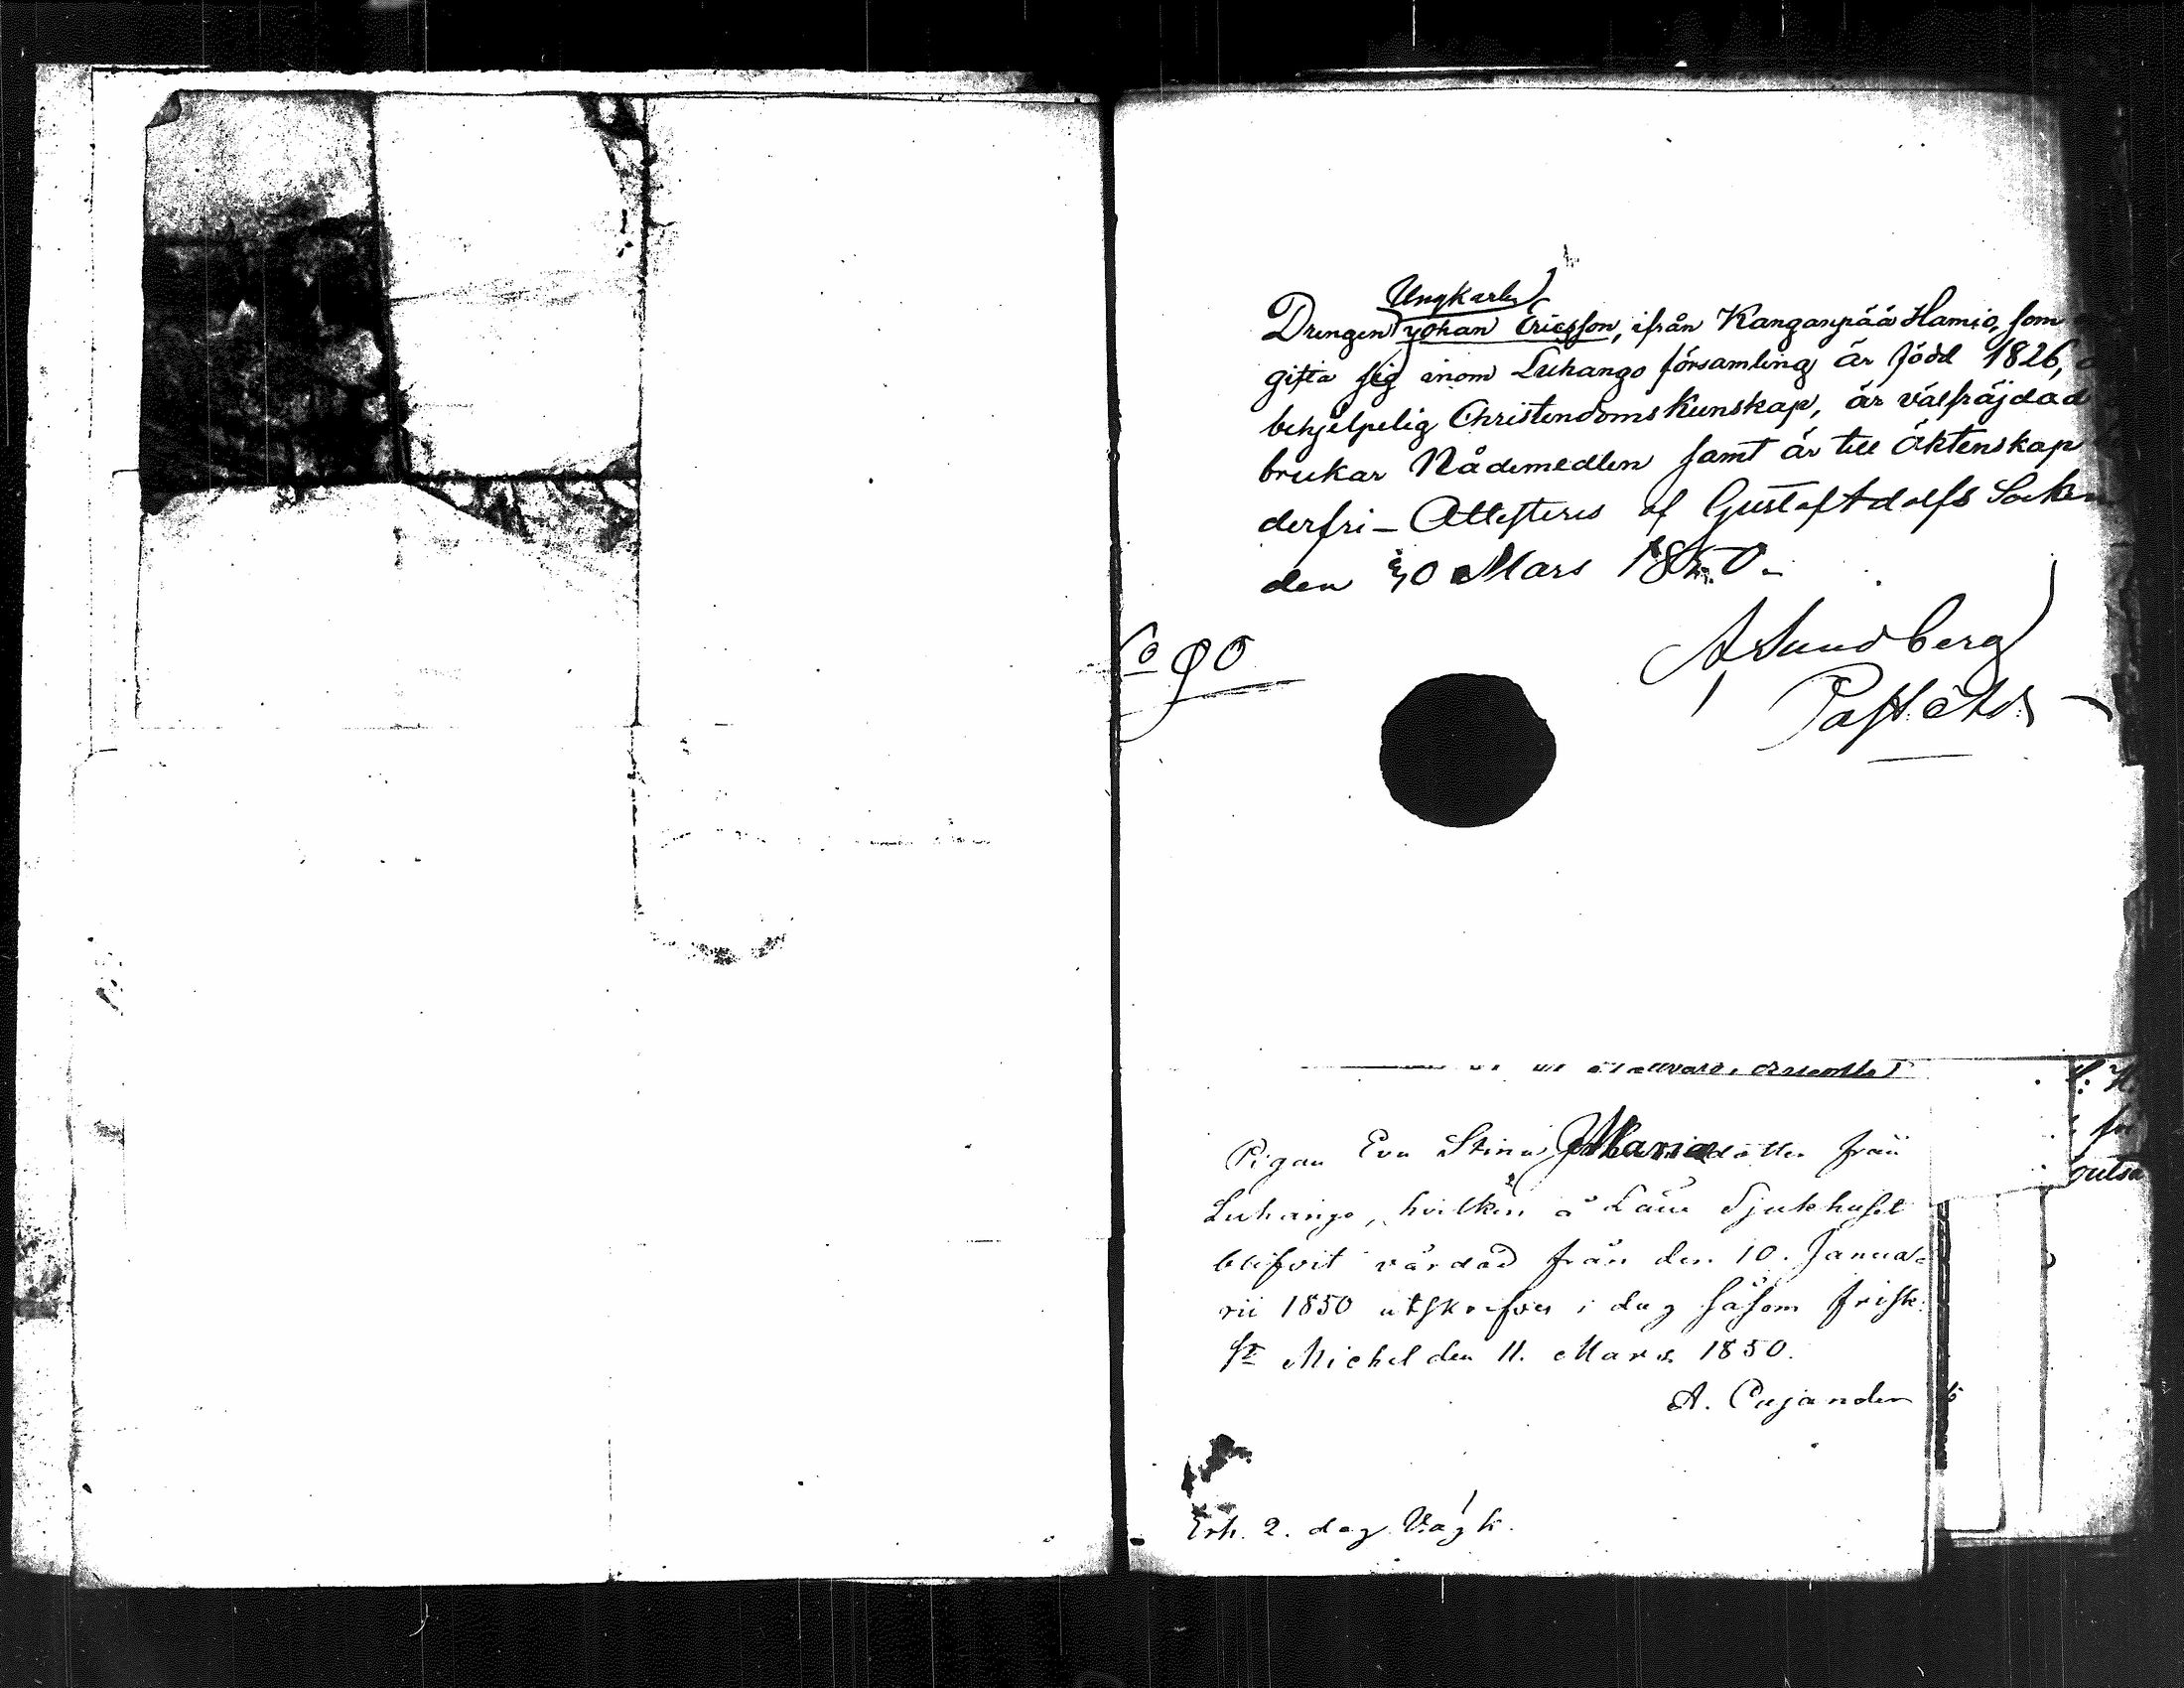 Ungkarlen
Drengen Johan Ericsson, ifrån Kanganpää Hamio, som
gifta sig inom Luhango församling är född 1826,
behjelpelig Christendoms Kunskap, är välfräjdad
brukar Nådemedlen samt är till äktenskap
derfri – Attesteras af Gustaf Adolfs Socken
den 30 Mars 1850.
A Sundberg
90
Pigan Eva Stina Maria dotter från
Luhango, hvilken å Läns Sjukhuset
blifvit vårdad från den 10. Janua-
rii 1850 utskrifves i dag såsom frisk.
St Michel den 11. Mars 1850.
A. Cajander
Erh. 2. dag